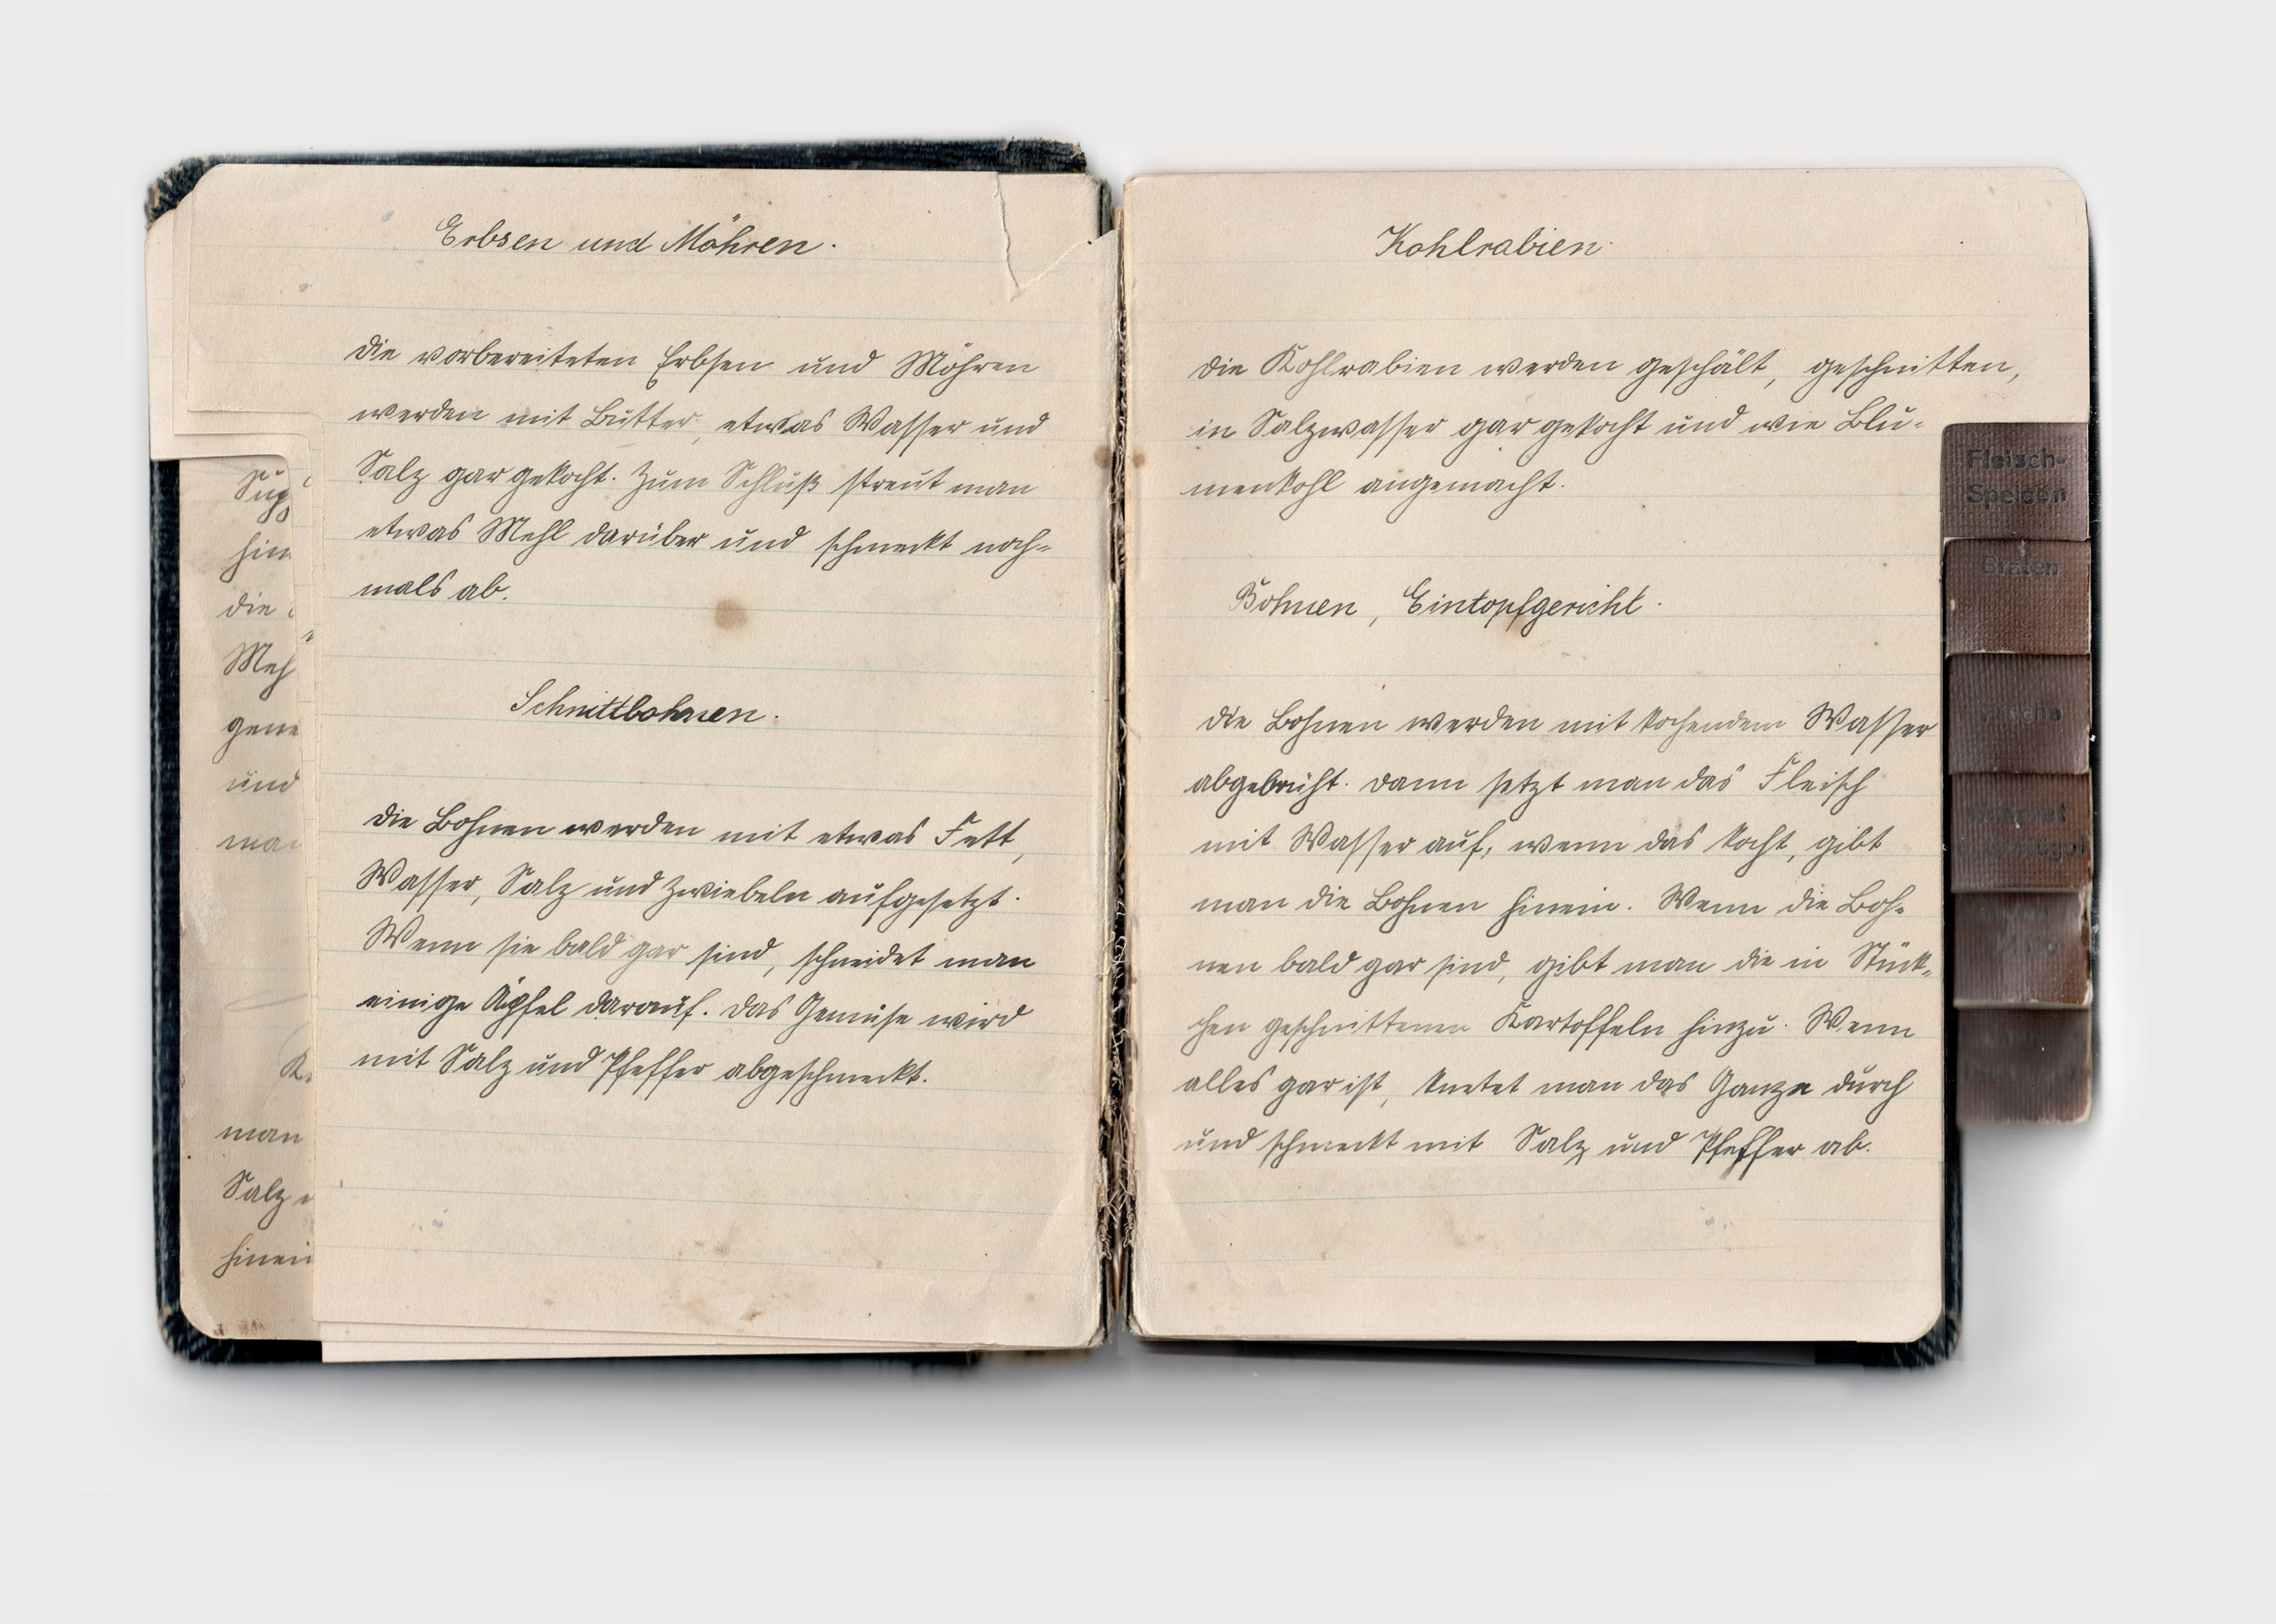 Erbsen und Möhren.
Die vorbereiteten Erbsen und Möhren
werden mit Butter, etwas Wasser und
Salz gar gekocht. Zum Schluß streut man
etwas Mehl darüber und schmeckt noch=
mals ab.
Schnittbohnen.
Die Bohnen werden mit etwas Fett,
Wasser, Salz und Zwiebeln aufgesetzt.
Wenn sie bald gar sind, schneidet man
einige Äpfel darauf. Das Gemüse wird
mit Salz und Pfeffer abgeschmeckt.
Kohlrabien.
Die Kohlrabien werden geschält, geschnitten,
in Salzwasser gar gekocht und wie Blu=
menkohl angemacht.
Bohnen, Eintopfgericht.
Die Bohnen werden mit kochendem Wasser
abgebrüht. Dann setzt man das Fleisch
mit Wasser auf, wenn das kocht, gibt
man die Bohnen hinein. Wenn die Boh=
nen bald gar sind, gibt man die in Stück=
chen geschnittenen Kartoffeln hinzu. Wenn
alles gar ist, knetet man das Ganze durch
und schmeckt mit Salz und Pfeffer ab.
die
und
man
Salz
Fleisch-
Speisen
Braten